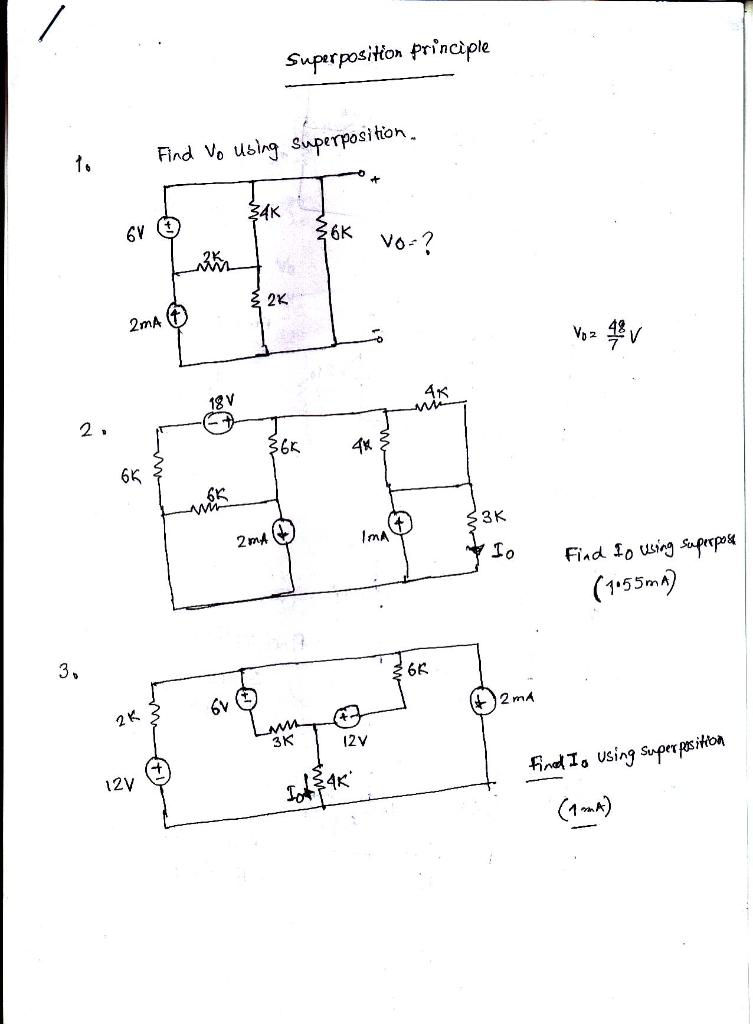 Superposition principle
1. Find Vo using superposition.
+
4K
6V
+-
6K
Vo=?
2K
2K
2mA
-
Vo = 48/7 V
2.
18V
-+
4K
6K
4K
6K
6K
2mA
1mA
3K
Io
Find Io using superpos
(1.55mA)
3.
6K
2K
6V
+-
2mA
+-
3K
12V
12V
+-
Io
4K
Find Io using superposition
(1mA)